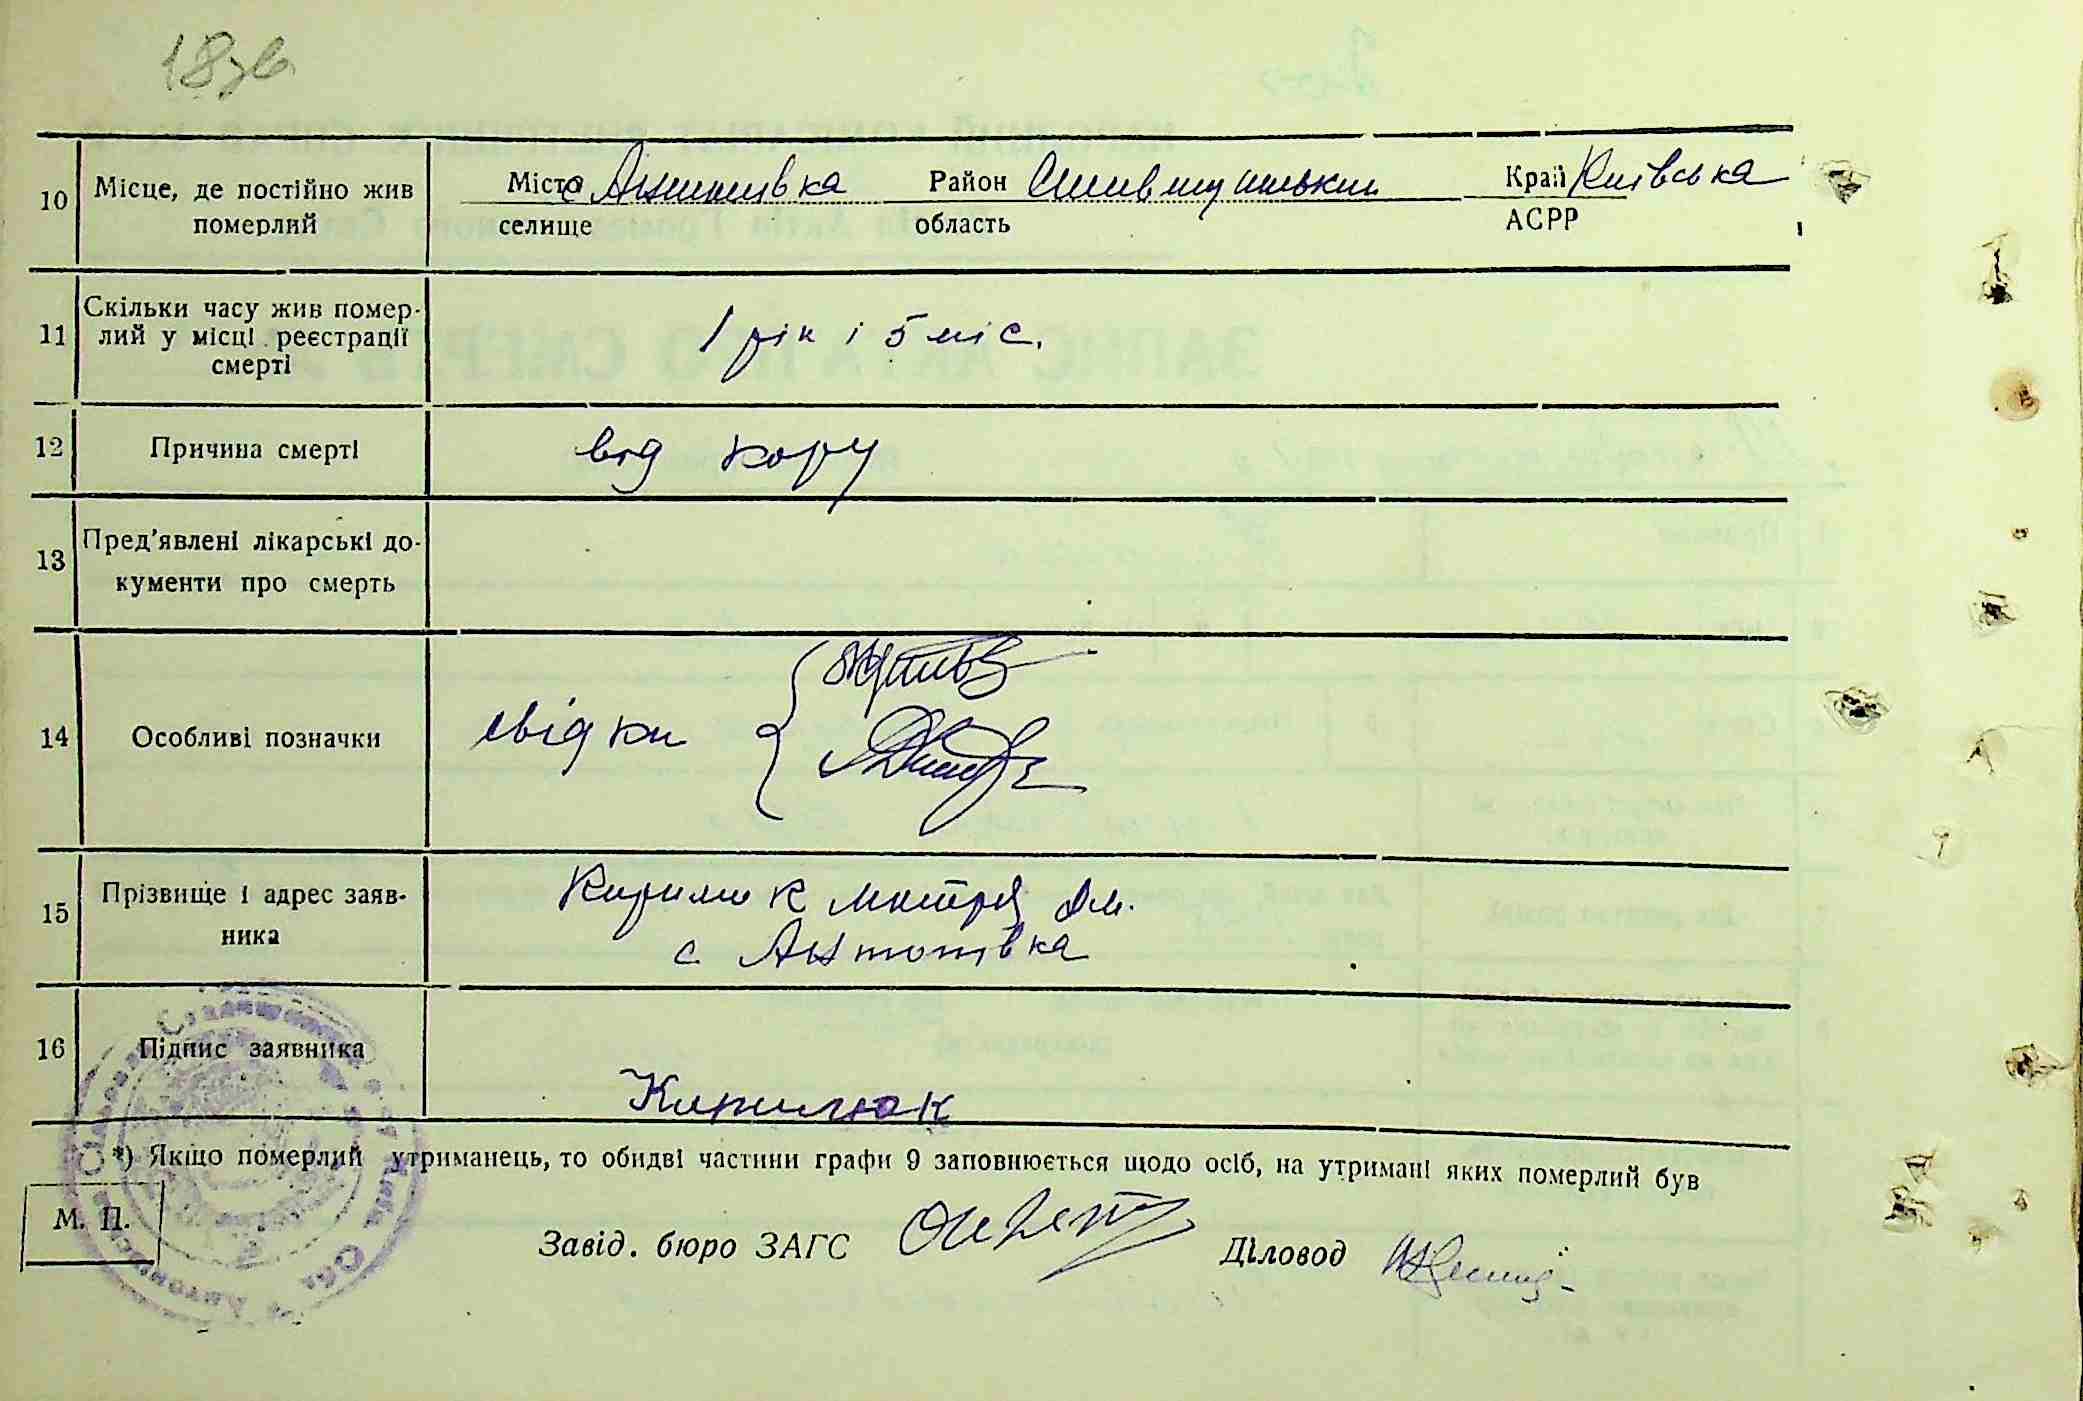 18зв
10 Місце, де постійно жив Місто с Антонівка Район Край Київська
померлий селище область АСРР
11 Скільки часу жив помер-
лий у місці реєстрації 1 рік і 5 міс.
смерті
12 Причина смерті від кору
13 Пред'явлені лікарські до-
кументи про смерть
14 Особливі позначки свідки
15 Прізвище і адрес заяв- Кирилюк Мотря Ом.
ника с. Антонівка
16 Підпис заявника
Кирилюк
*) Якщо померлий утриманець, то обидві частини графи 9 заповнюється щодо осіб, на утримані яких померлий був
М. П.
Завід. бюро ЗАГС Діловод